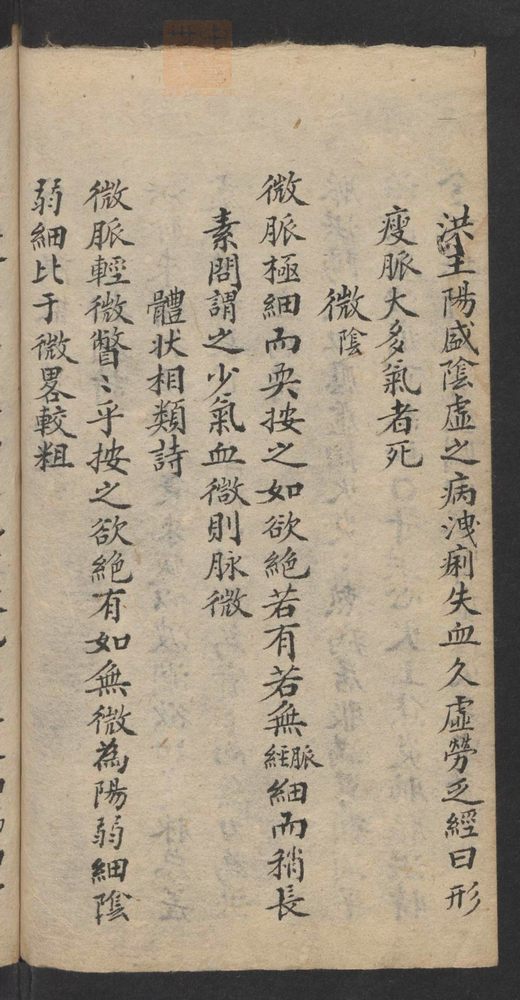 洪主陽盛陰虛之病洩痢失血久虛勞乏經曰形
瘦脈大多氣者死
微陰
微脈極細而耎按之如欲絶若有若無經脈細而稍長
素問謂之少氣血微則脉微
體状相類詩
微脈輕微瞥〻乎按之欲絶有如無微為陽弱細陰
弱細比于微畧較粗